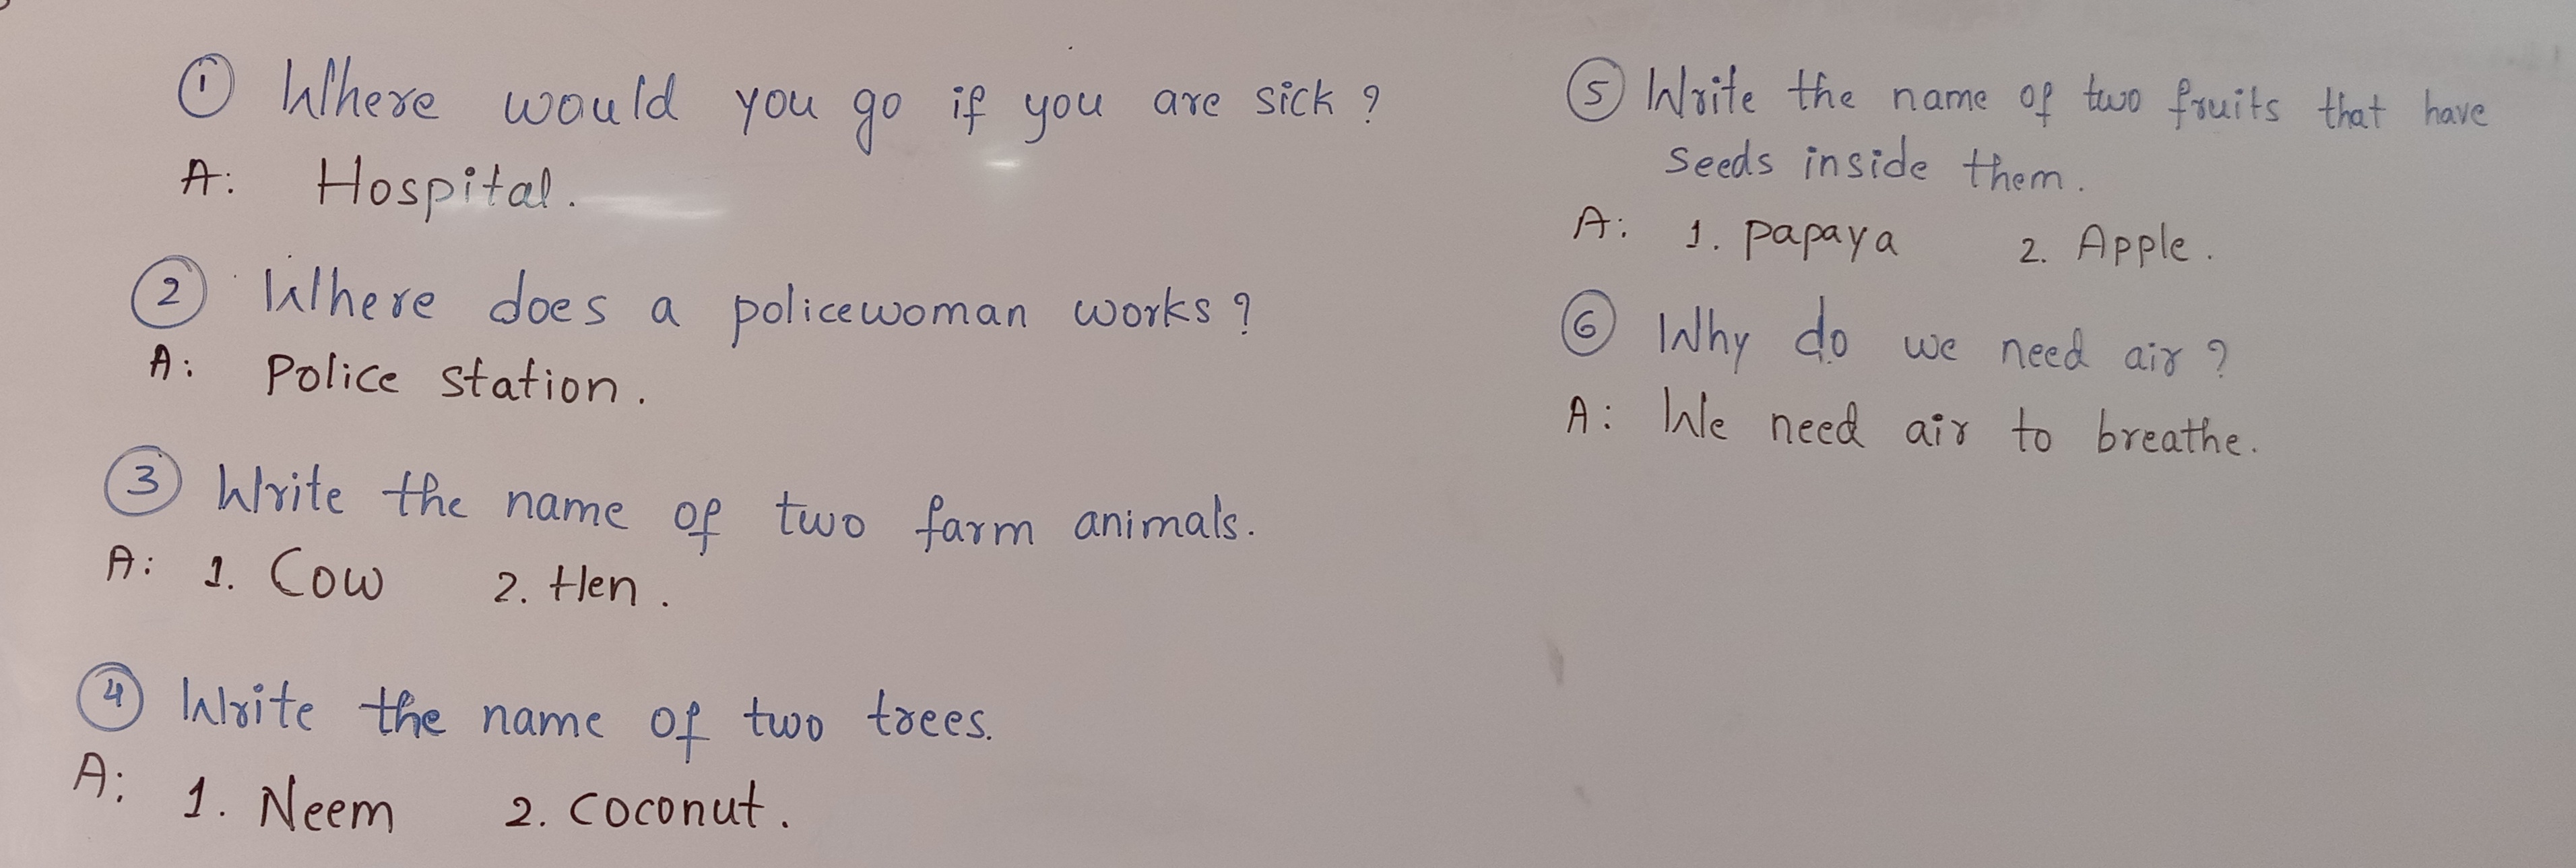 ① Where would you go if you are sick ?
A: Hospital.
② Where does a policewoman works ?
A: Police station.
③ Write the name of two farm animals.
A: 1. Cow 2. Hen.
④ Write the name of two trees.
A: 1. Neem 2. coconut.
⑤ Write the name of two fruits that have
seeds inside them.
A: 1. papaya 2. Apple.
⑥ Why do we need air ?
A: We need air to breathe.